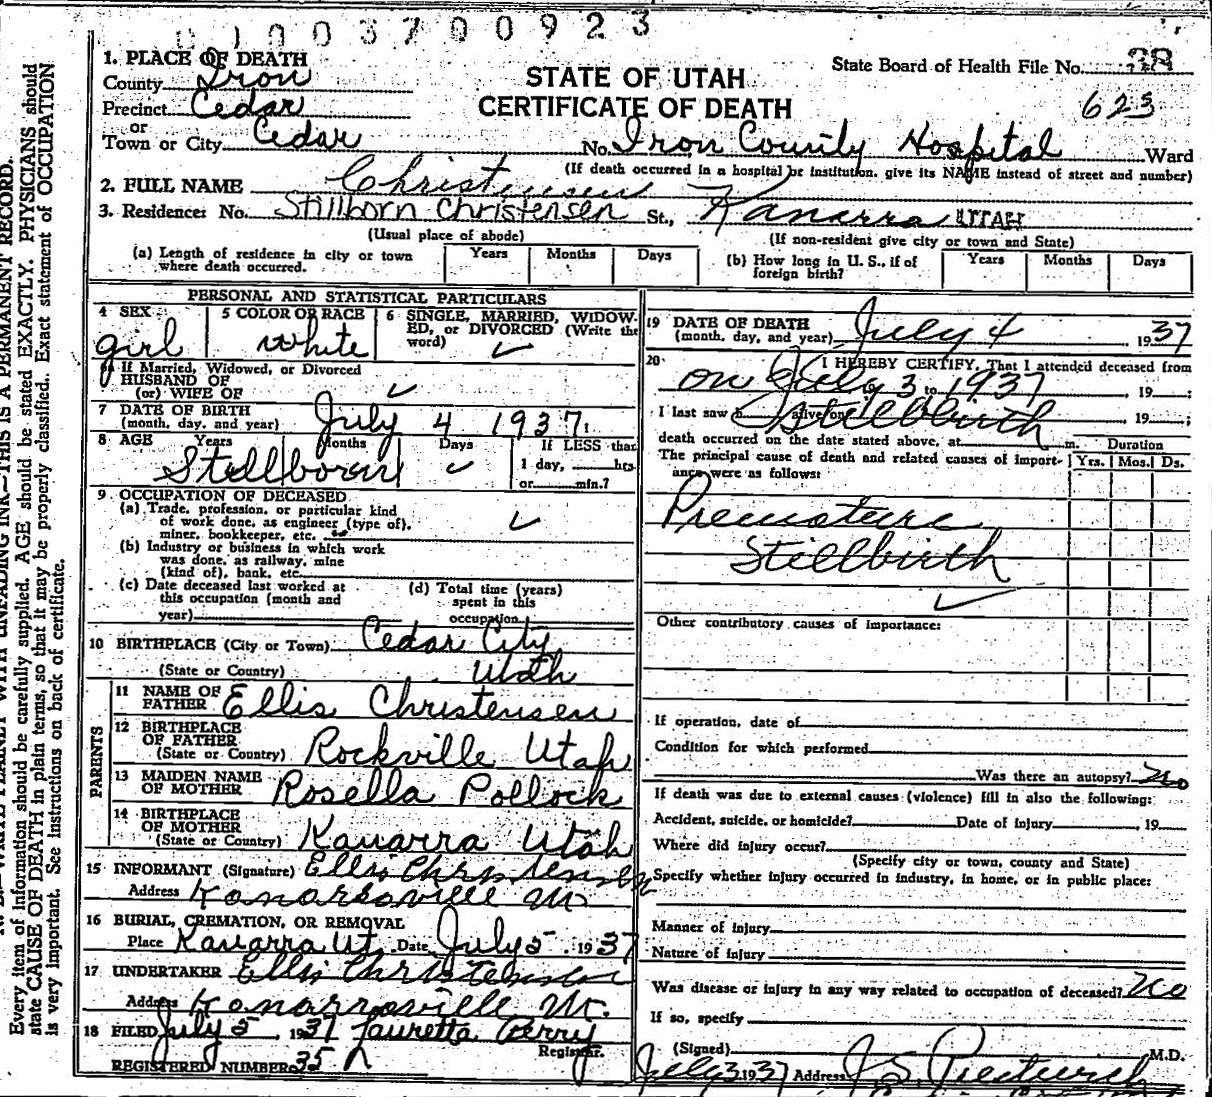 0100370092 3
1. PLACE OF DEATH
County Iron
Precinct Cedar
or
Town or City Cedar
STATE OF UTAH
CERTIFICATE OF DEATH
State Board of Health File No. 38
623
No. Iron County Hospital Ward
(If death occurred in a hospital or institution, give its NAME instead of street and number)
2. FULL NAME Christensen
3. Residence: No. Stillborn Christensen St., Kanarra UTAH
(Usual place of abode)
(If non-resident give city or town and State)
(a) Length of residence in city or town where death occurred. Years Months Days
(b) How long in U. S., if of foreign birth? Years Months Days
PERSONAL AND STATISTICAL PARTICULARS
4 SEX girl
5 COLOR OR RACE white
6 SINGLE, MARRIED, WIDOWED, or DIVORCED (Write the word) ✓
If Married, Widowed, or Divorced
HUSBAND OF
(or) WIFE OF ✓
7 DATE OF BIRTH (month, day, and year) July 4 1937
8 AGE Years Months Days If LESS than
Stillborn ✓ 1 day, hrs
or min.?
9 OCCUPATION OF DECEASED
(a) Trade, profession, or particular kind
of work done, as engineer (type of),
miner, bookkeeper, etc. ✓
(b) Industry or business in which work
was done, as railway, mine
(kind of), bank, etc.
(c) Date deceased last worked at
this occupation (month and
year)
(d) Total time (years)
spent in this
occupation
10 BIRTHPLACE (City or Town) Cedar City
(State or Country) Utah
PARENTS
11 NAME OF FATHER Ellis Christensen
12 BIRTHPLACE OF FATHER (State or Country) Rockville Utah
13 MAIDEN NAME OF MOTHER Rosella Pollock
14 BIRTHPLACE OF MOTHER (State or Country) Kanarra Utah
15 INFORMANT (Signature) Ellis Christensen
Address Kanarraville Ut
16 BURIAL, CREMATION, OR REMOVAL
Place Kanarra Ut. Date July 5 1937
17 UNDERTAKER Ellis Christensen
Address Kanarraville Ut.
18 FILED July 5, 1937 Lauretta Perry
Registrar.
REGISTERED NUMBER 35
19 DATE OF DEATH (month, day, and year) July 4, 1937
20 I HEREBY CERTIFY, That I attended deceased from
on July 3 to 1937, 19
I last saw h alive on Stillbirth, 19
death occurred on the date stated above, at m.
The principal cause of death and related causes of importance were as follows:
Duration
Yrs. Mos. Ds.
Premature
Stillbirth
✓
Other contributory causes of importance:
If operation, date of
Condition for which performed
Was there an autopsy? no
If death was due to external causes (violence) fill in also the following:
Accident, suicide, or homicide? Date of injury , 19
Where did injury occur?
(Specify city or town, county and State)
Specify whether injury occurred in industry, in home, or in public place:
Manner of injury
Nature of injury
Was disease or injury in any way related to occupation of deceased? no
If so, specify
(Signed) M.D.
July 3 1937 Address J. S. Prestwich
WRITE PLAINLY WITH UNFADING INK—THIS IS A PERMANENT RECORD.
Every item of information should be carefully supplied. AGE should be stated EXACTLY. PHYSICIANS should
state CAUSE OF DEATH in plain terms, so that it may be properly classified. Exact statement of OCCUPATION
is very important. See instructions on back of certificate.